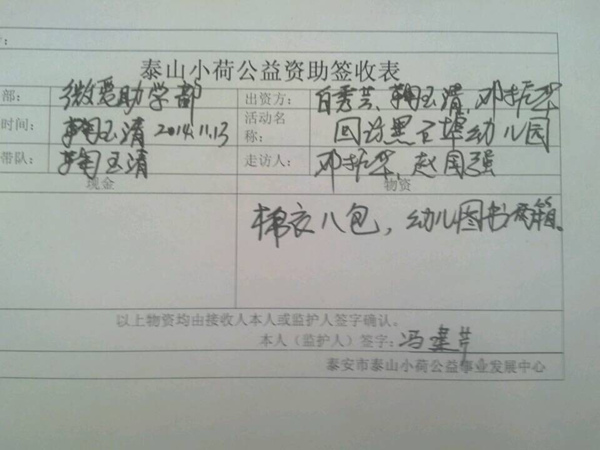 泰山小荷公益资助签收表
部： 微爱助学部 出资方： 白秀芸、鞠玉清、邓振华
时间： 鞠玉清 2014.11.13 活动名称： 回访黑石埠幼儿园
带队： 鞠玉清 走访人： 邓振华、赵国强
现金 物资
棉衣八包，幼儿图书两箱。
以上物资均由接收人本人或监护人签字确认。
本人（监护人）签字：冯建芹
泰安市泰山小荷公益事业发展中心